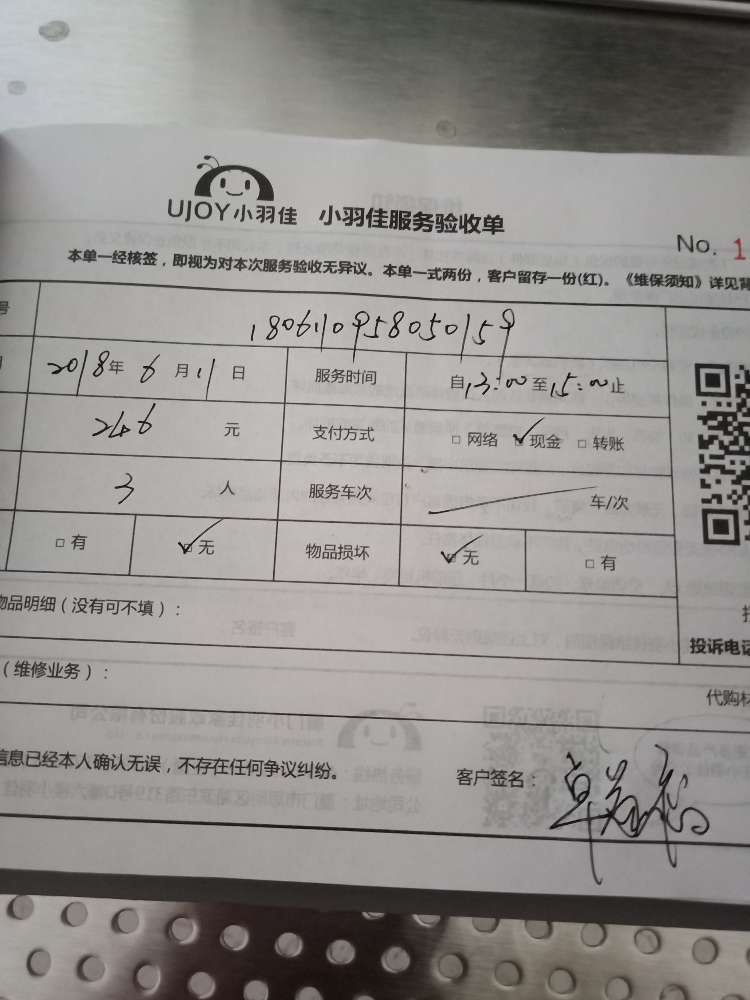 UJOY小羽佳 小羽佳服务验收单
No. 1
本单一经核签，即视为对本次服务验收无异议。本单一式两份，客户留存一份(红)。《维保须知》详见背
号 1806110958050159
2018年 6月11日 服务时间 自13:00至15:00止
246元 支付方式 □网络 ✓现金 □转账
3人 服务车次 车/次
□有 ✓无 物品损坏 ✓无 □有
物品明细（没有可不填）：
投诉电话
（维修业务）：
代购材
信息已经本人确认无误，不存在任何争议纠纷。 客户签名：